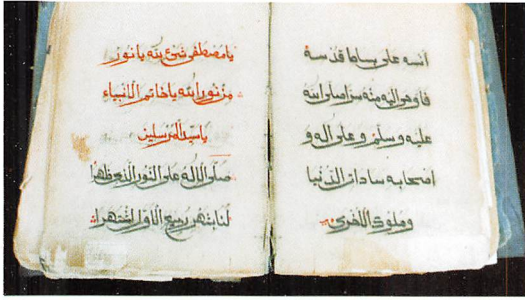 انسه على بساط قدسه
فاوحى اليه منه سرا صلى الله
عليه و سلم و على اله و
اصحابه سادات الدنيا
وملوك الاخرى
يا مصطفى شئ لله يا نور
من نور الله يا خاتم الانبياء
يا سيد المرسلين
صلى الاله على النور الذي ظهرا
لنا بشهر ربيع الاول اشتهرا